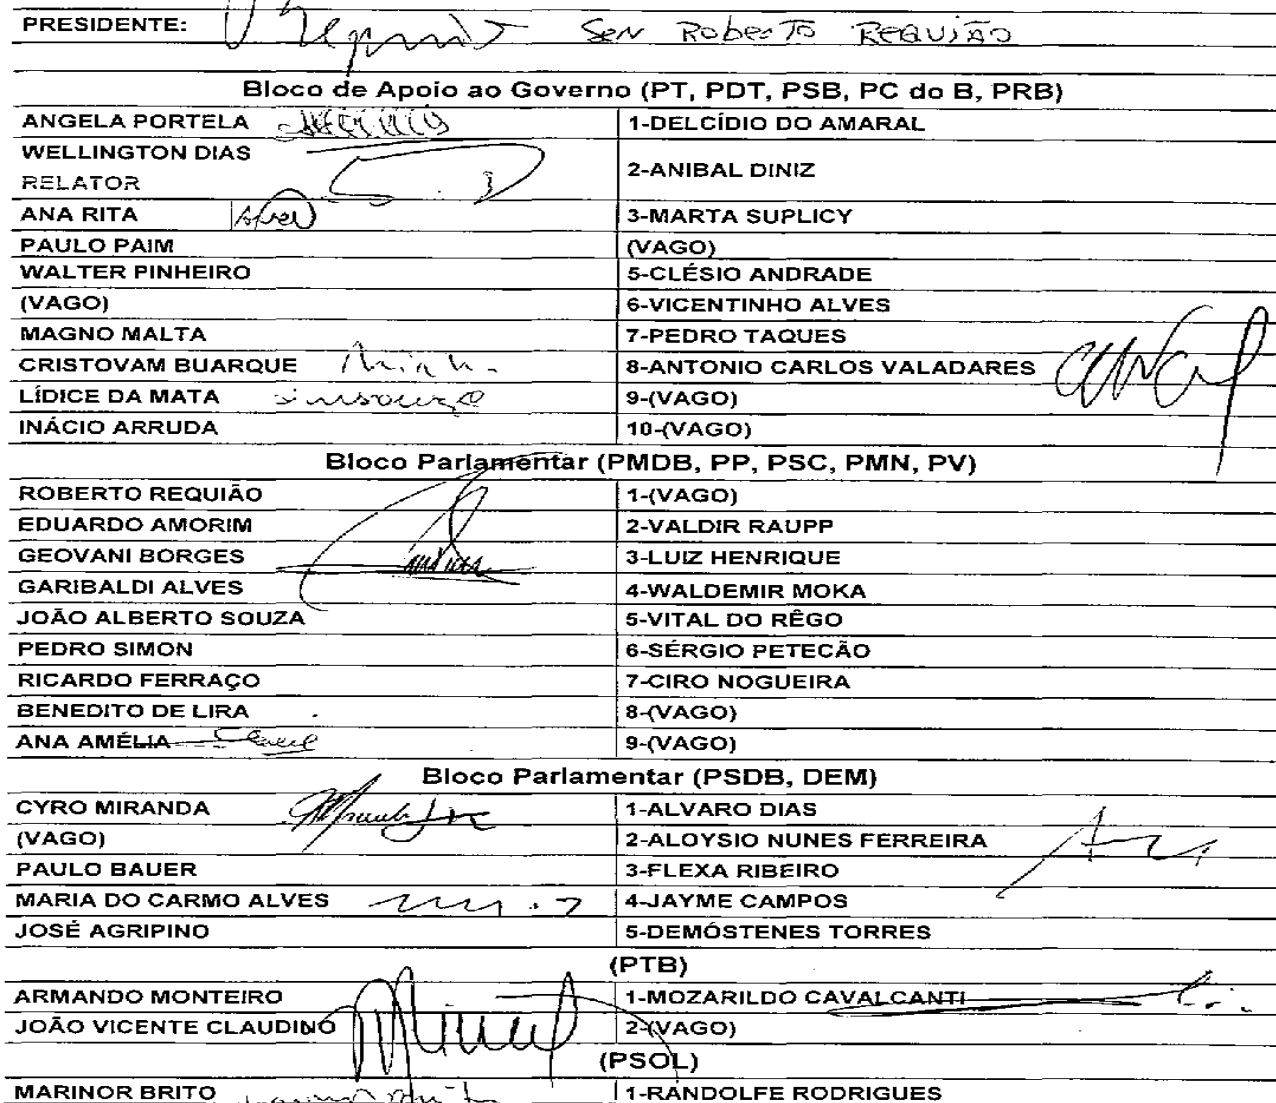 PRESIDENTE: Sen Roberto REQUIÃO
Bloco de Apoio ao Governo (PT, PDT, PSB, PC do B, PRB)
ANGELA PORTELA 1-DELCÍDIO DO AMARAL
WELLINGTON DIAS
RELATOR 2-ANIBAL DINIZ
ANA RITA 3-MARTA SUPLICY
PAULO PAIM (VAGO)
WALTER PINHEIRO 5-CLÉSIO ANDRADE
(VAGO) 6-VICENTINHO ALVES
MAGNO MALTA 7-PEDRO TAQUES
CRISTOVAM BUARQUE 8-ANTONIO CARLOS VALADARES
LÍDICE DA MATA 9-(VAGO)
INÁCIO ARRUDA 10-(VAGO)
Bloco Parlamentar (PMDB, PP, PSC, PMN, PV)
ROBERTO REQUIÃO 1-(VAGO)
EDUARDO AMORIM 2-VALDIR RAUPP
GEOVANI BORGES 3-LUIZ HENRIQUE
GARIBALDI ALVES 4-WALDEMIR MOKA
JOÃO ALBERTO SOUZA 5-VITAL DO RÊGO
PEDRO SIMON 6-SÉRGIO PETECÃO
RICARDO FERRAÇO 7-CIRO NOGUEIRA
BENEDITO DE LIRA 8-(VAGO)
ANA AMÉLIA 9-(VAGO)
Bloco Parlamentar (PSDB, DEM)
CYRO MIRANDA 1-ALVARO DIAS
(VAGO) 2-ALOYSIO NUNES FERREIRA
PAULO BAUER 3-FLEXA RIBEIRO
MARIA DO CARMO ALVES 4-JAYME CAMPOS
JOSÉ AGRIPINO 5-DEMÓSTENES TORRES
(PTB)
ARMANDO MONTEIRO 1-MOZARILDO CAVALCANTI
JOÃO VICENTE CLAUDINO 2-(VAGO)
(PSOL)
MARINOR BRITO 1-RANDOLFE RODRIGUES